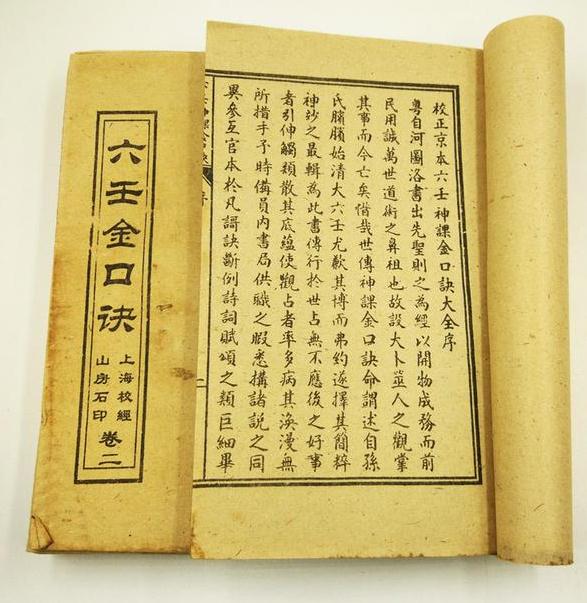 六壬金口诀
上海校經
山房石印
卷二
校正京本六壬神課金口訣大全序
粤自河圖洛書出先聖則之為經以開物成務而前
民用誠萬世道術之鼻祖也故設大卜筮人之觀掌
其事而今亡矣惜哉世傳神課金口訣命謂述自孫
氏臏臏始清大六壬尤歎其博而弗約遂擇其簡粹
神玅之最輯為此書傳行於世占無不應後之好事
者引伸觸類散其底蘊使觀占者率多病其渙漫無
所措手予時備員内書局供職之暇悉搆諸說之同
異參互官本於凡謌訣斷例詩詞賦頌之類巨細畢
二